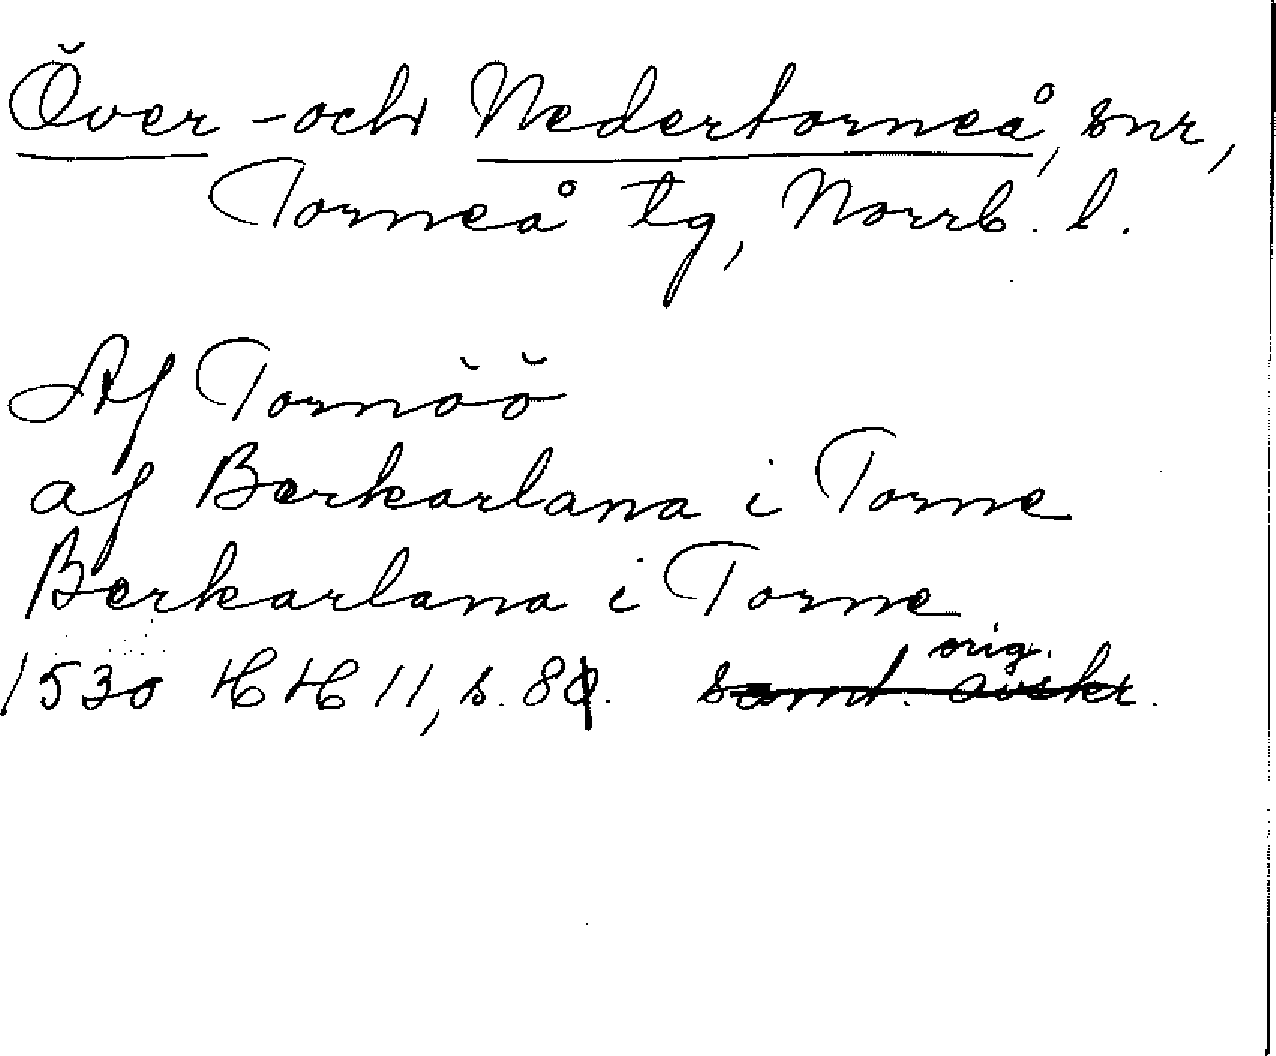 Över- och Nedertorneå, snr,
Torneå tg, Norrb. l.
Af Tornöö
af Berkarlana i Torne
Berkarlana i Torne
orig.
1530 HH 11, s. 89. samt. avskr.